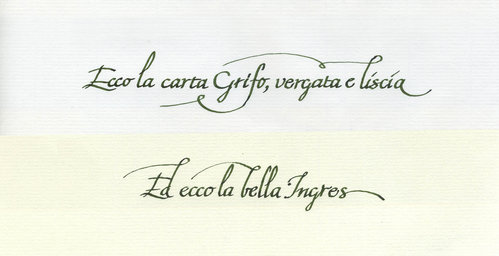 Ecco la carta Grifo, vergata e liscia
Ed ecco la bella Ingres